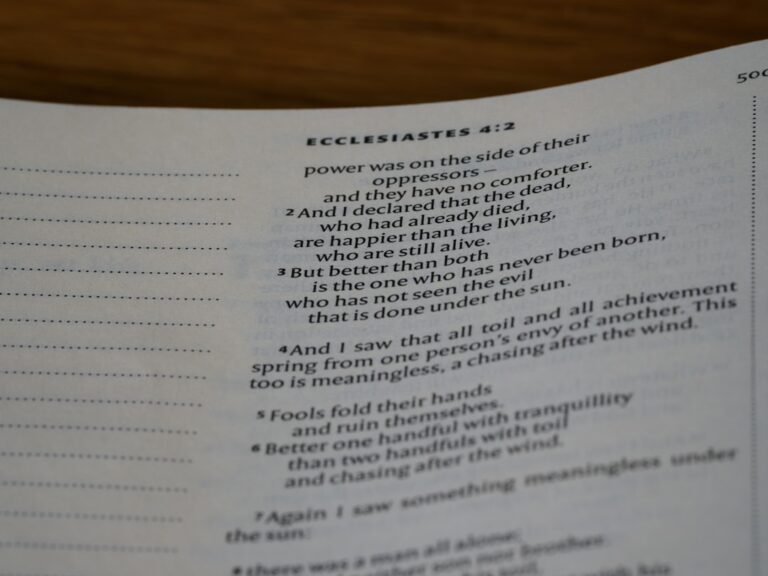 ECCLESIASTES 4:2
500
power was on the side of their
oppressors —
and they have no comforter.
2 And I declared that the dead,
who had already died,
are happier than the living,
who are still alive.
3 But better than both
is the one who has never been born,
who has not seen the evil
that is done under the sun.
4 And I saw that all toil and all achievement
spring from one person's envy of another. This
too is meaningless, a chasing after the wind.
5 Fools fold their hands
and ruin themselves.
6 Better one handful with tranquillity
than two handfuls with toil
and chasing after the wind.
7 Again I saw something meaningless under
the sun:
8 there was a man all alone;
neither son nor brother.